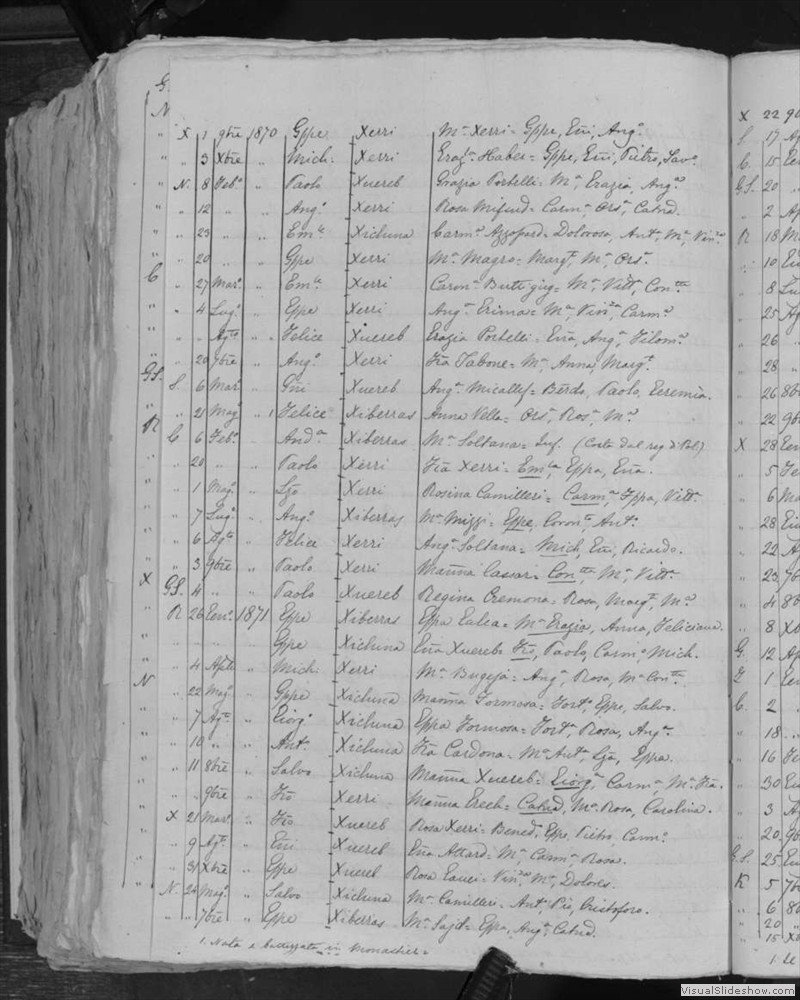 G.
N
" X 1 9bre 1870 Gppe Xerri Mª Xerri = Gppe, Eñi, Angº
" " 3 Xbre " Mich: Xerri Habee = Gppe, Eñi, Pietro, Savº
" N. 8 Febº " Paolo Xuereb Grazia Portelli = Mª, Erazia, Angª
" " 12 " " Angº Xerri Rosa Mifsud = Carmª Orsª, Catnd.
" " 23 " " Emle Xichuna Carmª Azzopard = Dolorosa, Antª, Mª, Vinza
" " 20 " " Gppe Xerri Mª Magro = Margt, Mª, Orsª
C " 27 Marº " Emle Xerri Carmª Buttigieg = Mª, Vittª, Contta
" " 4 Lugº " Eppe Xerri Angª Erima = Mª, Vinza, Carmª
" " " Agto " Felice Xuereb Erazia Portelli = Eña, Angª, Filomª
" " 20 7bre " Angº Xerri Fra Tabone = Mª, Anna, Margt
GS. S. 6 Marº " Gñi Xuereb Angª Micallef = Berdo, Paolo, Eeremia.
" " 21 Magº " 1 Felice Xiberras Anna Vella = Orsª, Rosª, Mª
R C 6 Febº " Andea Xiberras Mª Soltana = Inf. (Costa dal reg. di Pol.)
" " 20 " " Paolo Xerri Fra Xerri = Emla, Eppa, Eña.
" " 1 Magº " Xerri Rosina Camilleri = Carmª Vittª
" " 7 Lugº " Angº Xiberras Mª Mizzi = Eppe, Coronta Antª
" " 6 Agto " Felice Xerri Angª Soltana = Mich, Eñi, Ricardo.
" " 3 9bre " Paolo Xerri Mañña Cassar = Contta, Mª, Vittª
X GS. 4 " " Paolo Xuereb Regina Cremona = Rosa, Margt, Mª
" R 26 Eenº 1871 Eppe Xiberras Eppa Ealea = Mª Erazia, Anna, Feliciana.
" " " " Gppe Xichuna Eña Xuereb = Frõ, Paolo, Carmº, Mich.
" " 4 Aple " Mich: Xerri Mª Bugeja = Angª, Rosa, Mª Contta
N " 22 Magº " Gppe Xichuna Mañña Formosa = Fortº, Eppe, Salvo.
" " 7 Agto " Eiorgº Xichuna Eppa Formosa = Fortª, Rosa, Angª
" " 10 " " Antº Xichuna Fra Cardona = Mª Antª, Eppa.
" " 11 8bre " Salvo Xichuna Mañña Xuereb = Eiorgª, Carmª, Mª Fra.
" " " 9bre " Frõ Xerri Mañña Erech = Catnd, Mª Rosa, Carolina.
" X 21 Marº " Frõ Xuereb Rosa Xerri = Benedº, Eppe, Pietro, Carmº
" " 9 Agto " Eñi Xuereb Eña Attard = Mª, Carmª, Rosa.
" " 31 Xbre " Eppe Xuereb Rosa Eauci = Vinza, Mª, Dolores.
" N 24 Magº " Salvo Xichuna Mª Camilleri = Antº, Pio, Cristoforo.
" " " 7bre " Eppe Xiberras Mª Sajt = Eppa, Angª, Catnd.
1. Nata e battezzata in Monastier =
X 22 90
S. 17 Ap
C. 15 Een
GS. 20 "
" 2 Ap
R 18 M
" 10 Eiu
" 8 Lu
" 25 Ag
" 26 "
" 28 "
" 26 8b
" 22 9b
X 28 Een
" 5 Fe
" 6 Ma
" 28 Eiu
" 22 A
" 23 7b
" 4 8b
" 8 Xb
G. 12 Ap
Z 1 Een
C. 2 "
" 18 "
" 16 Fe
" 30 Eiu
" 3 Ag
" 20 9b
G.S. 25 Eu
K 5 7b
" 6 8b
" 20 "
" 15 Xb
VisualSlideshow.com